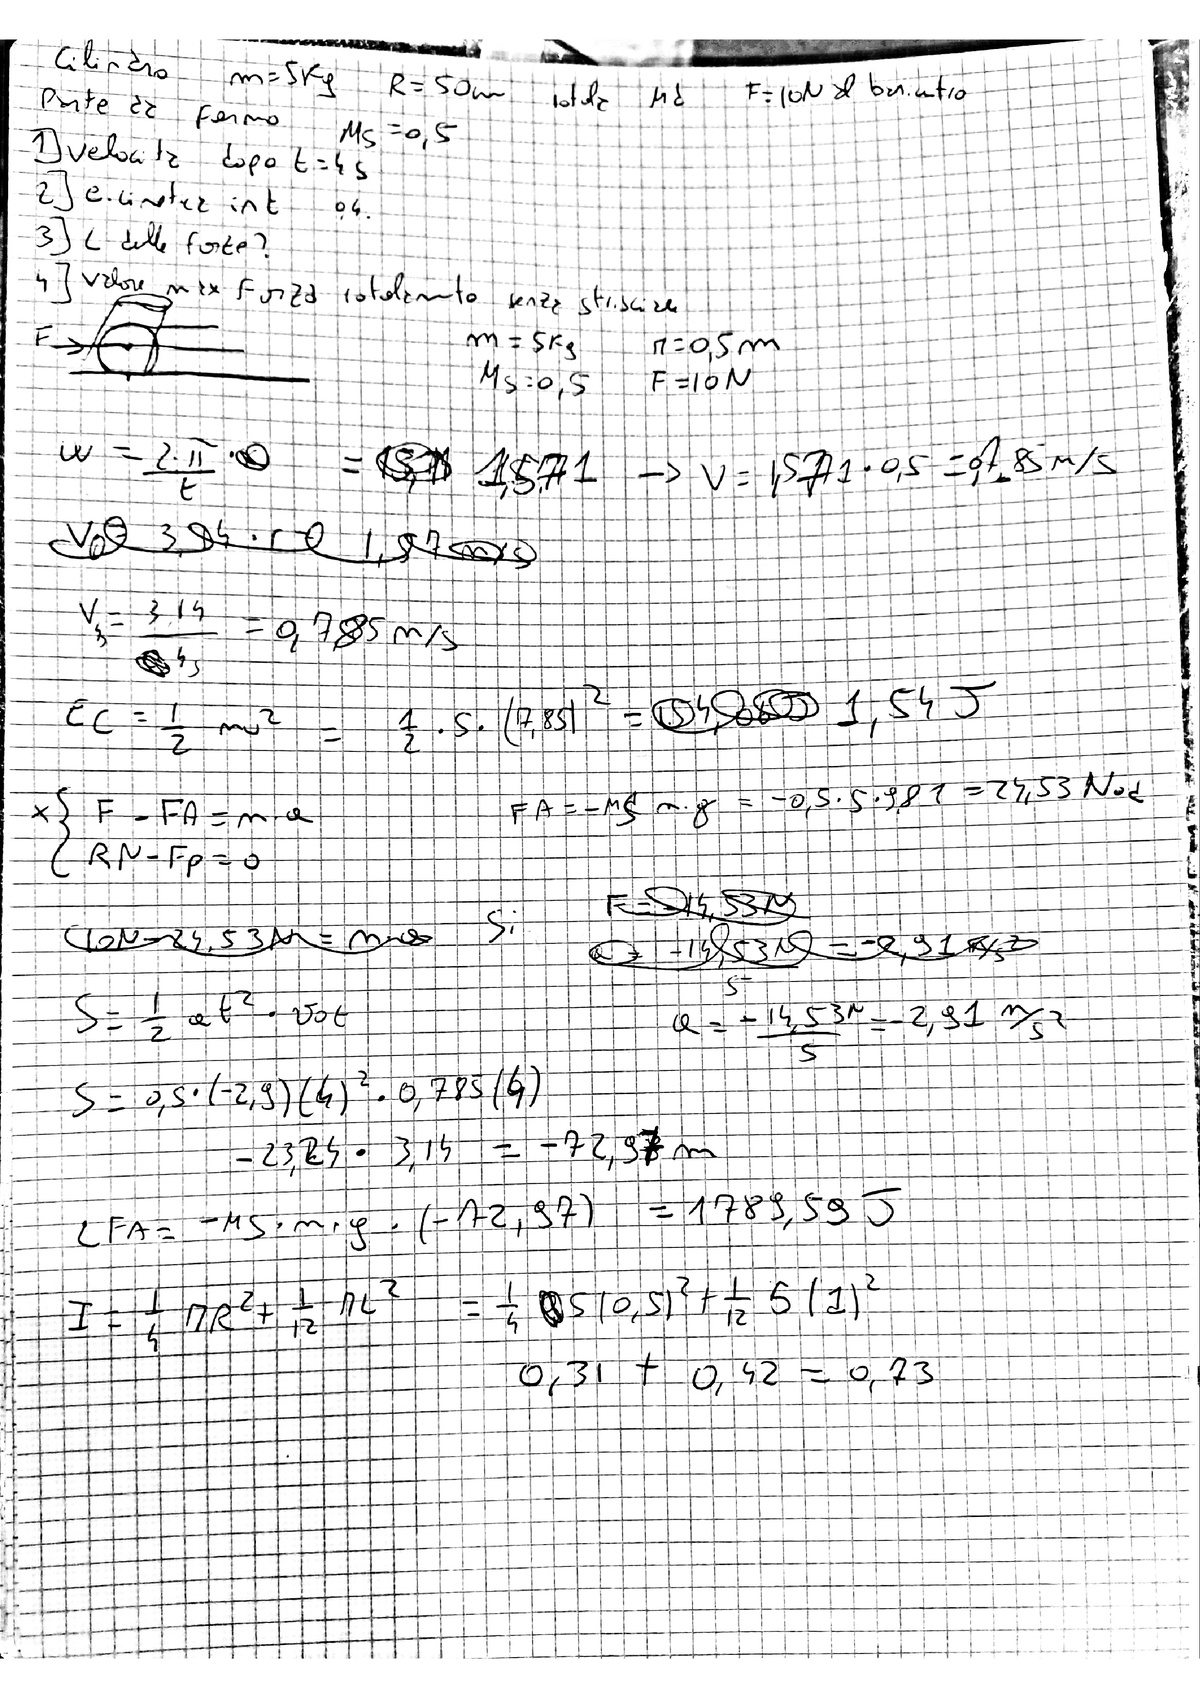 Cilindro m=5Kg R=50cm rotola F=10N al baricentro
Parte da fermo Ms=0,5
1] Velocità dopo t=4s
2] e. cinetica in t 04.
3] L delle forze?
4] Valore max Forza rotolamento senza strisciare
F
m=5Kg r=0,5m
Ms=0,5 F=10N
w = 2·π / t = 1,571 → V = 1,571·0,5 = 0,785 m/s
V = 3,14 / 4s = 0,785 m/s
Ec = 1/2 mv² = 1/2 · 5 · (7,85)² = 1,54 J
x { F - FA = m·a FA = -Ms m·g = -0,5·5·9,81 = 24,53 N
RN - Fp = 0
10N - 24,53N = m·a Si F = -14,53N
a = -14,53N / 5 = -2,91 m/s²
S = 1/2 at² · vot a = -14,53N / 5 = -2,91 m/s²
S = 0,5·(-2,9)(4)² · 0,785(4)
-23,24 · 3,14 = -72,97 m
LFA = -Ms·m·g · (-72,97) = 1789,59 J
I = 1/4 MR² + 1/12 ML² = 1/4 5(0,5)² + 1/12 5(1)²
0,31 + 0,42 = 0,73